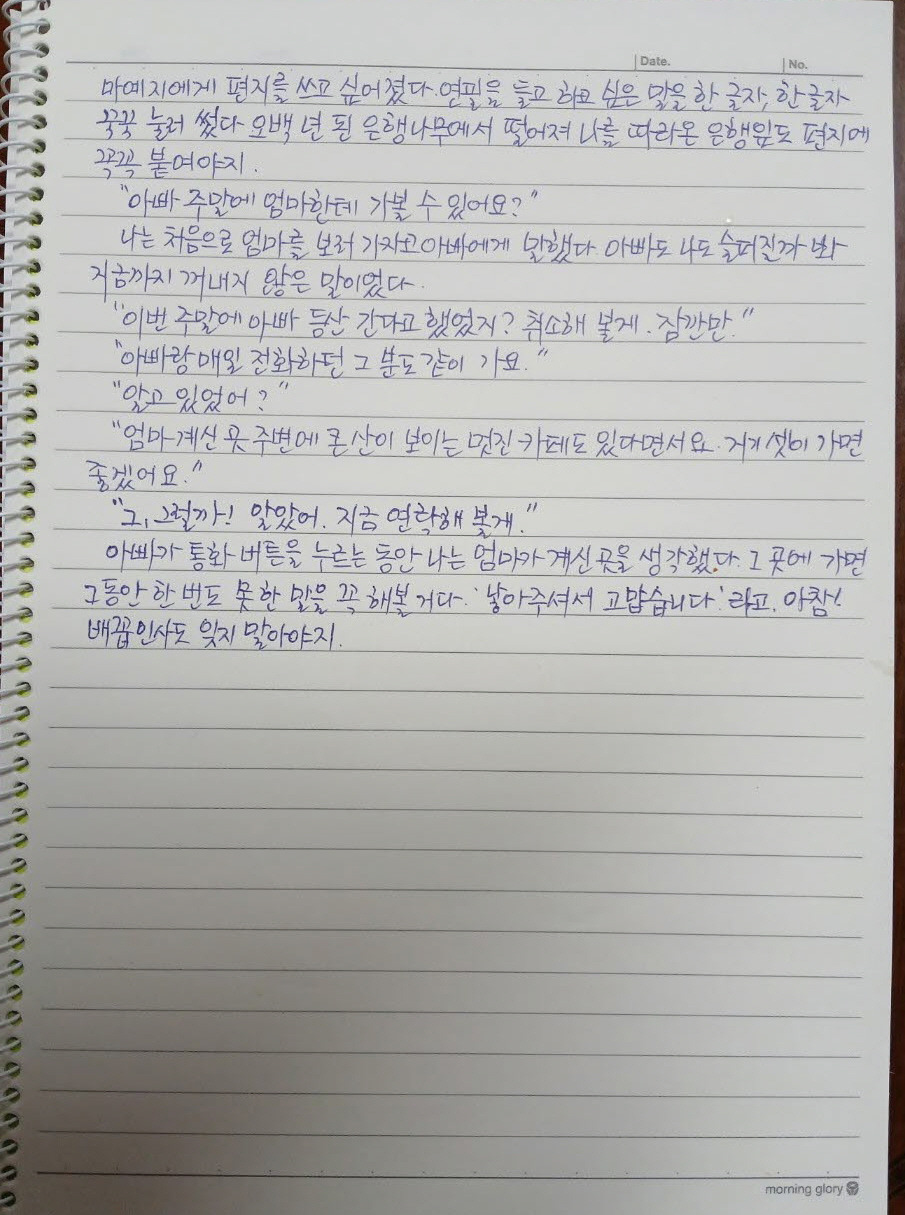 Date.
No.
마예지에게 편지를 쓰고 싶어졌다. 연필을 들고 하고 싶은 말을 한 글자, 한 글자
꾹꾹 눌러 썼다 오백 년 된 은행나무에서 떨어져 나를 따라온 은행잎도 편지에
꼭꼭 붙여야지.
"아빠 주말에 엄마한테 가볼 수 있어요?"
나는 처음으로 엄마를 보러 가자고 아빠에게 말했다. 아빠도 나도 슬퍼질까 봐
지금까지 꺼내지 않은 말이었다.
"이번 주말에 아빠 등산 간다고 했었지? 취소해 볼게. 잠깐만."
"아빠랑 매일 전화하던 그 분도 같이 가요."
"알고 있었어?"
"엄마 계신 곳 주변에 큰 산이 보이는 멋진 카페도 있다면서요. 거기 셋이 가면
좋겠어요."
"그, 그럴까! 알았어. 지금 연락해 볼게."
아빠가 통화 버튼을 누르는 동안 나는 엄마가 계신 곳을 생각했다. 그 곳에 가면
그동안 한 번도 못 한 말을 꼭 해볼 거다. '낳아주셔서 고맙습니다' 라고. 아참!
배꼽인사도 잊지 말아야지.
morning glory